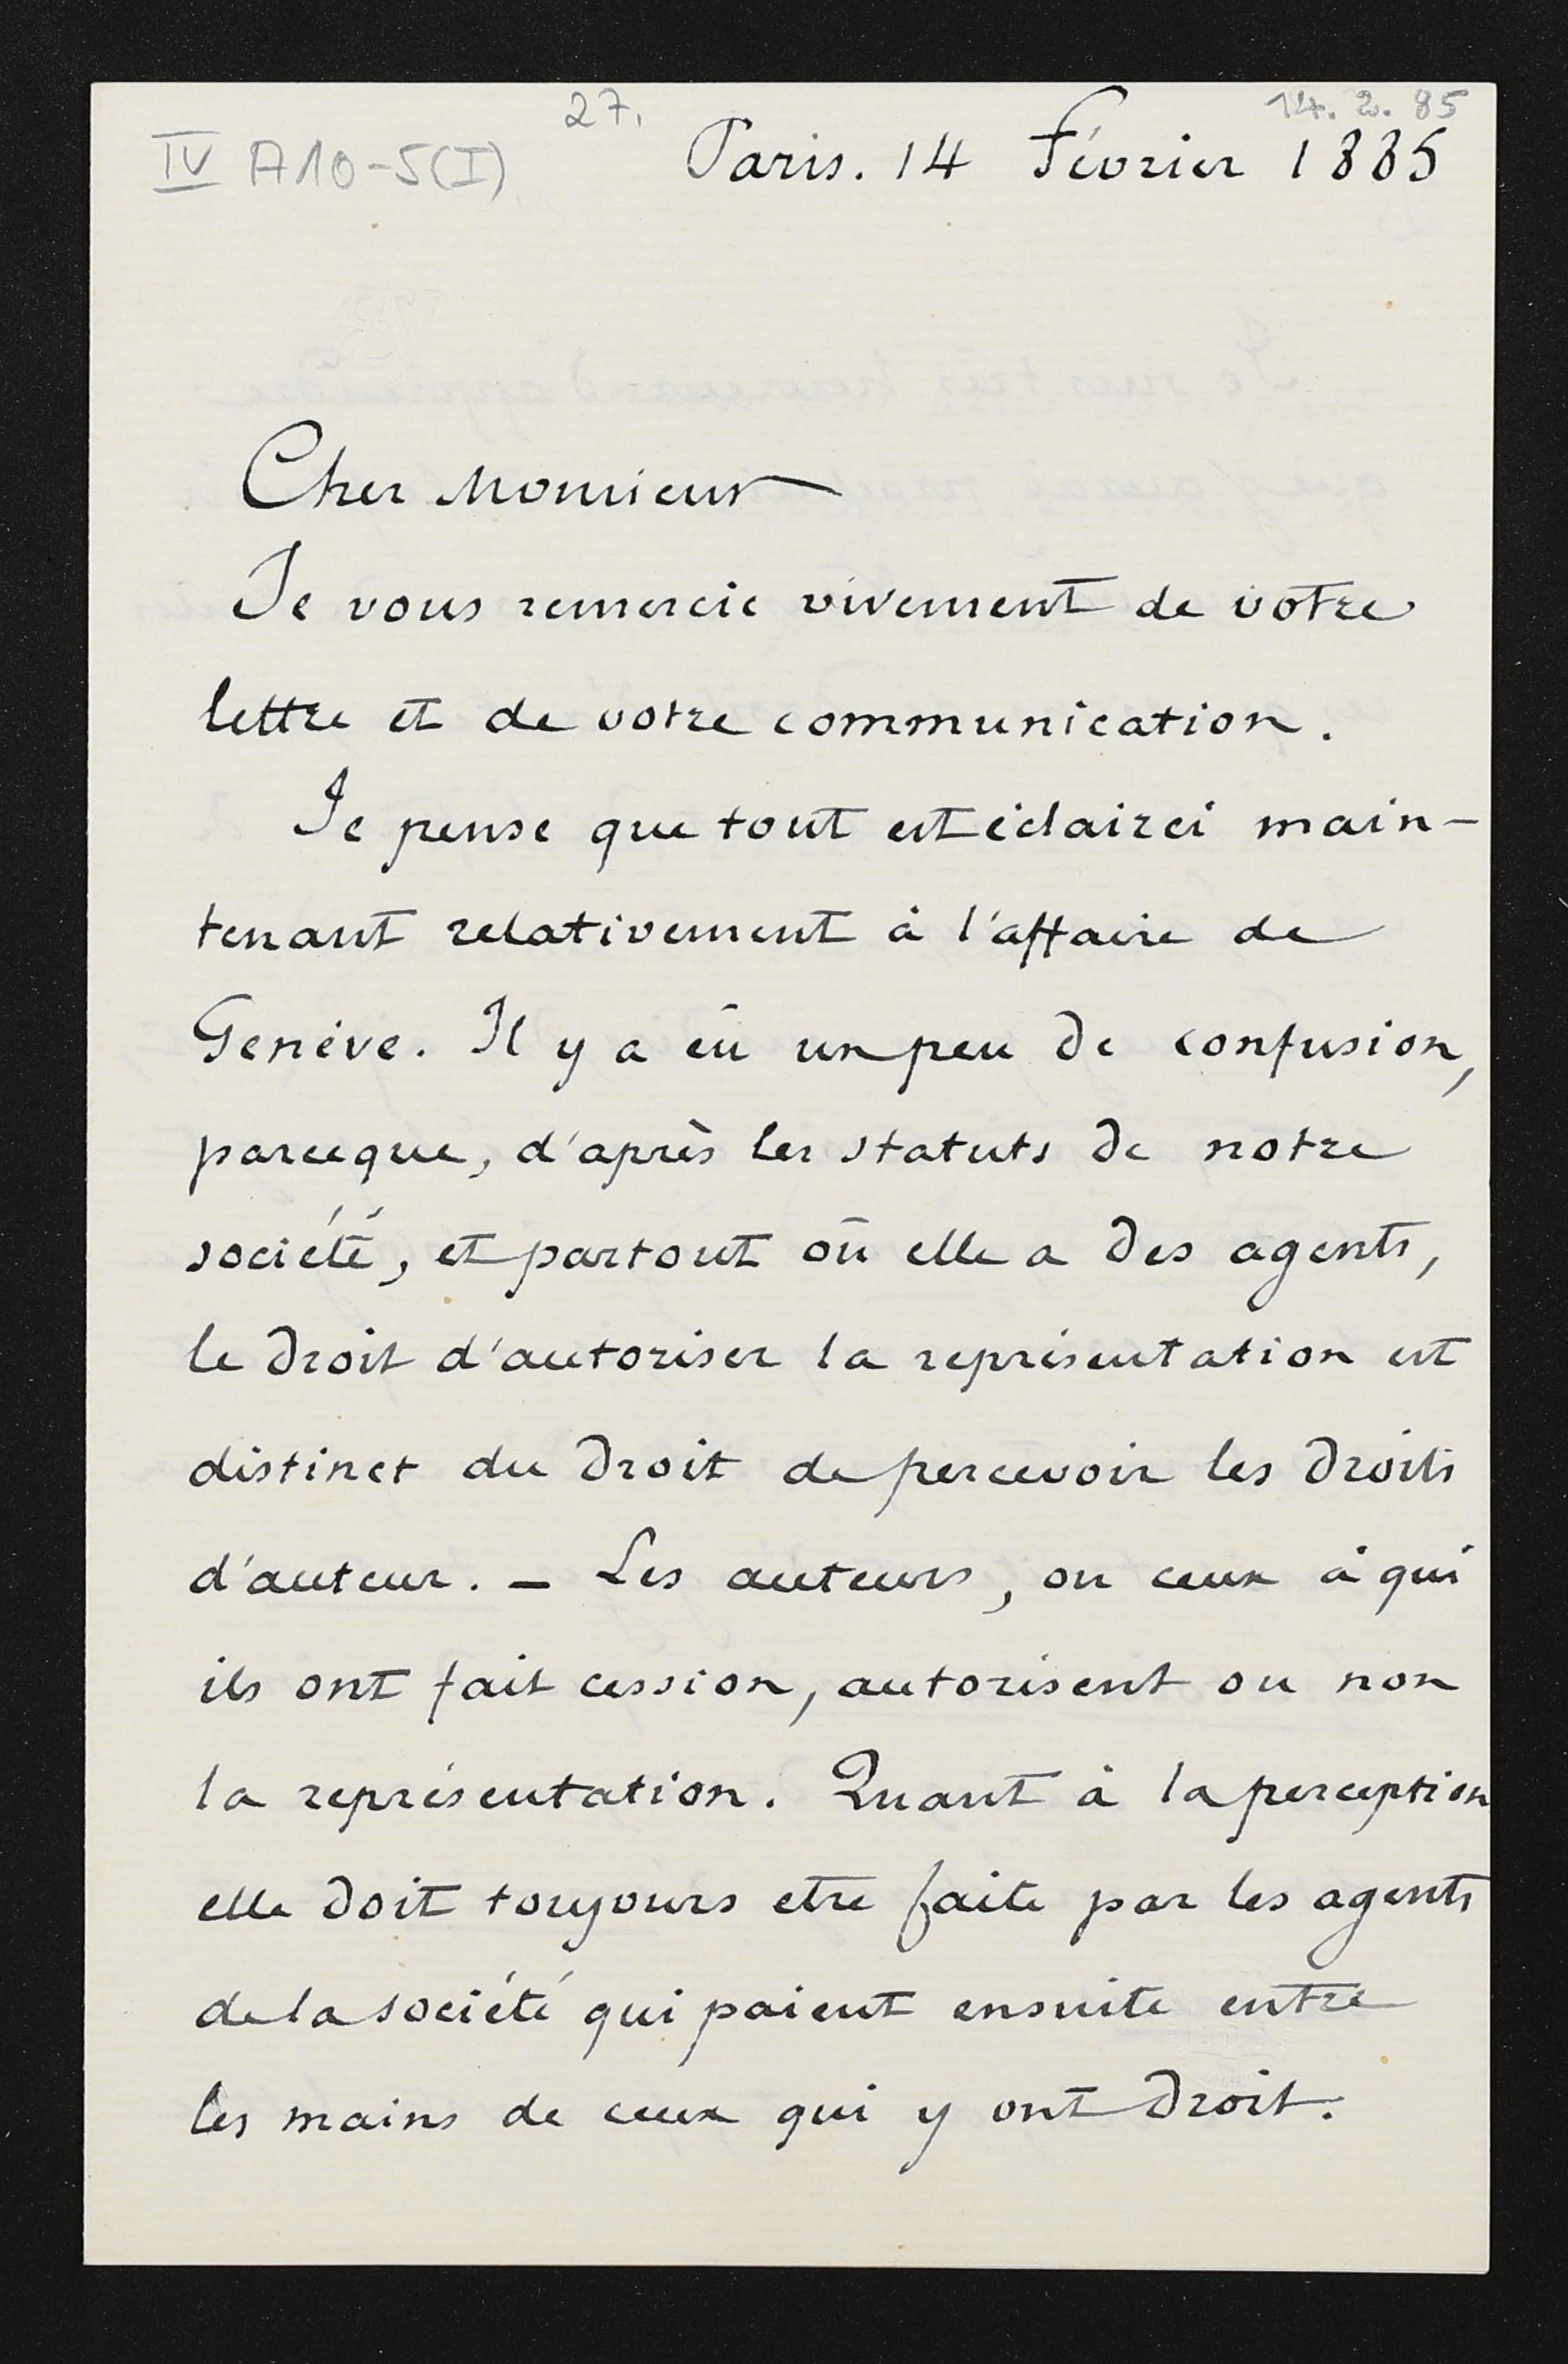 27.
14. 2. 85
IV A10-5(I)
Paris. 14 Février 1885
Cher Monsieur
Je vous remercie vivement de votre
lettre et de votre communication.
Je pense que tout est éclairci main-
tenant relativement à l'affaire de
Genève. Il y a eû un peu de confusion,
parceque, d'après les statuts de notre
société, et partout où elle a des agents,
le droit d'autoriser la représentation est
distinct du droit de percevoir les droits
d'auteur. — Les auteurs, ou ceux à qui
ils ont fait cession, autorisent ou non
la représentation. Quant à la perception
elle doit toujours etre faite par les agents
de la société qui paient ensuite entre
les mains de ceux qui y ont droit.